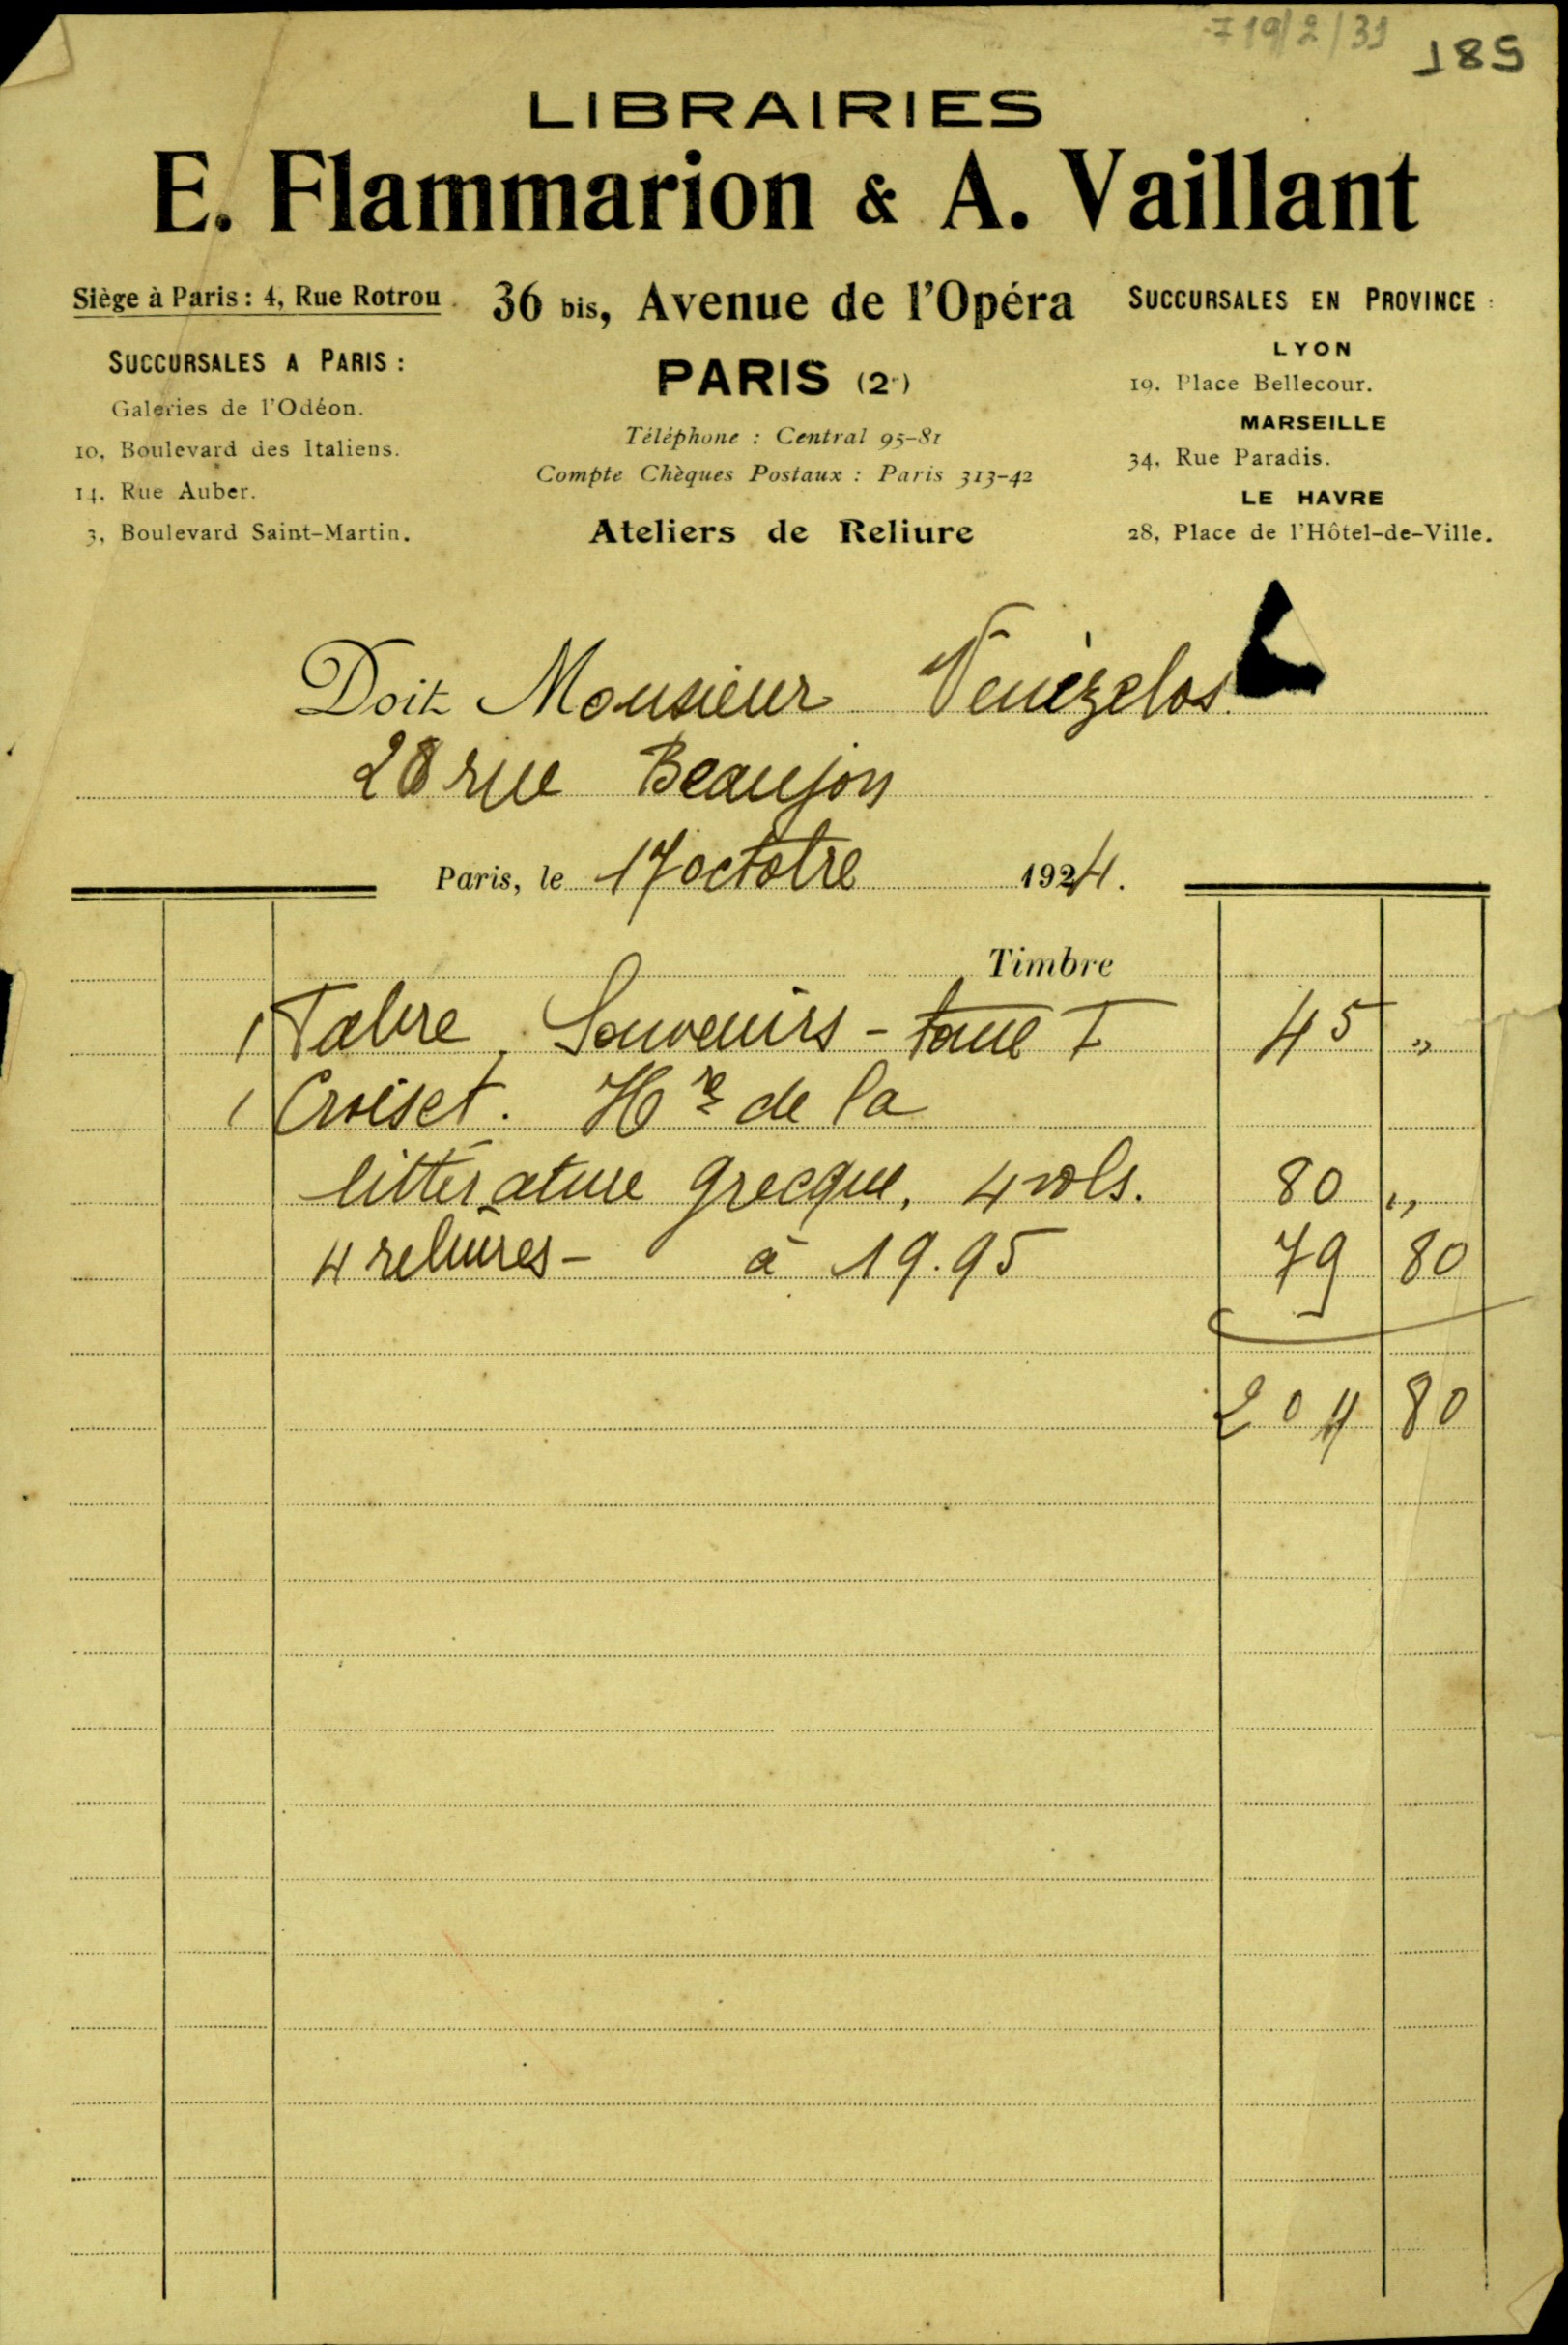 719/2/31
185
LIBRAIRIES
E. Flammarion & A. Vaillant
Siège à Paris : 4, Rue Rotrou
SUCCURSALES A PARIS :
Galeries de l'Odéon.
10, Boulevard des Italiens.
14, Rue Auber.
3, Boulevard Saint-Martin.
36 bis, Avenue de l'Opéra
PARIS (2e)
Téléphone : Central 95-81
Compte Chèques Postaux : Paris 313-42
Ateliers de Reliure
SUCCURSALES EN PROVINCE :
LYON
19, Place Bellecour.
MARSEILLE
34, Rue Paradis.
LE HAVRE
28, Place de l'Hôtel-de-Ville.
Doit Monsieur Venézelos
28 rue Beaujon
Paris, le 17 octobre 1924.
Timbre
1 Fabre, Souvenirs - tome I 45 "
1 Croiset. Hre de la
littérature grecque, 4 vols. 80 "
4 reliures - à 19.95 79 80
204 80